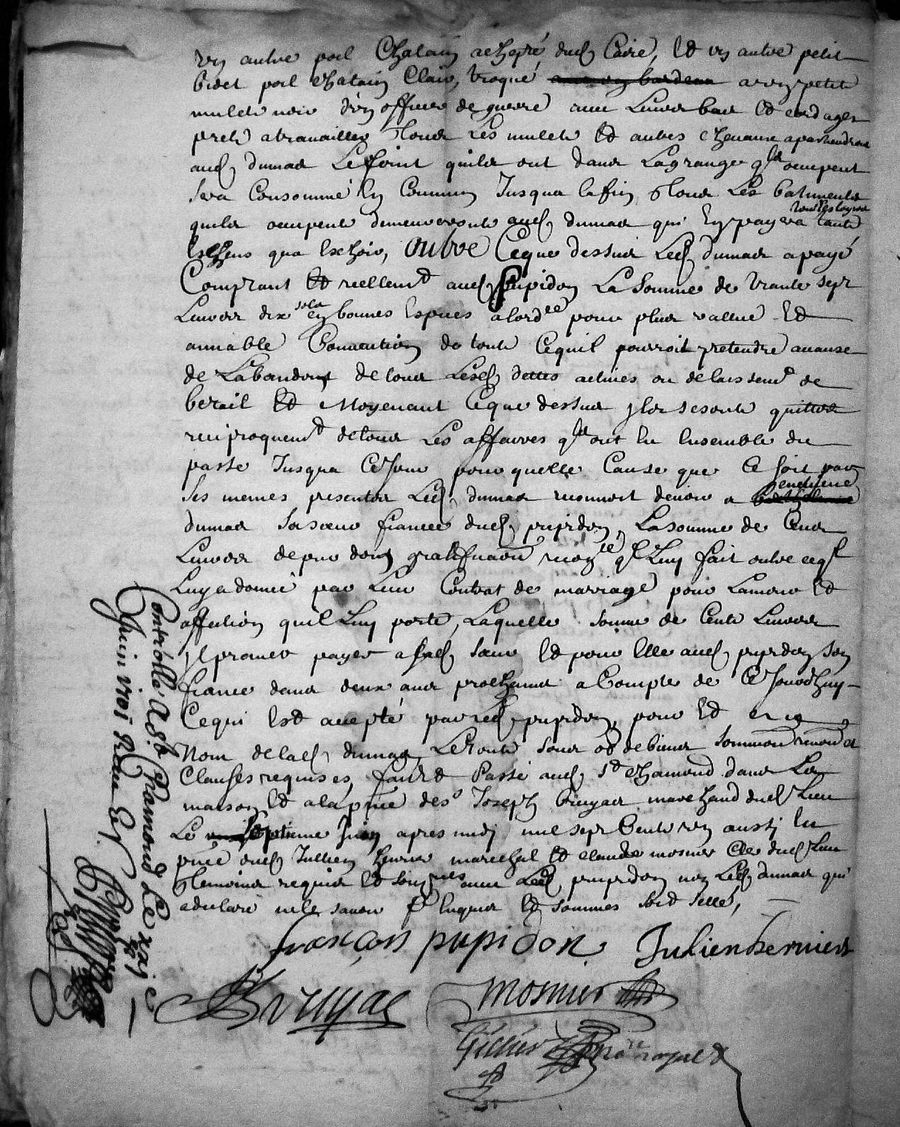 un autre poil Chatain achepté dud Caire, Et un autre petit
bidet poil chatain Clair, troqué avec un petit
mulet noir d'un officier de guerre avec Leurs bats Et cordages
prets a travailler tous Les mulets Et autres chevaux apartiendront
aud dumas Le foint quils ont dans La grange qls occupent
sera Consommé En Commun Jusqua la fin tous Les batiments
quils occupent demeureront aud dumas qui En payera
tous les loyers tants
Eschus qua Eschoir, Outre Ceque dessus Led dumas a payé
Comptant Et reellemt aud pupidon La Somme de trante sept
Livres dix sols en bonnes Especes pour plus vallue Et
amiable Convention de tout Cequil pourroit pretendre a cause
de L'abandont de tous Lesd dettes actives ou delaissemt de
betail Et Moyenant Ceque dessus Ils se sont quittes
reciproquemt de tous Les affaires qls ont Eu Ensemble du
passé Jusqua Ce Jour pour quelle Cause que Ce soit par
Ses memes presentes Led dumas reconnoit devoir a
dumas Sa sœur fiancée dud pupidon, La somme de Cent
Livres de pur don, gratification qil Luy fait outre ceql
Luy a donné par Leur Contrat de mariage pour Lamour Et
affection quil Luy porte, Laquelle somme de Cent Livres
Il promet payer a sad sœur Et pour Elle aud pupidon son
fiance dans deux ans prochains a Compte de Ce Jourdhuy
Cequi Est accepté par led pupidon, pour Et au
Nom de lad dumas Le tout sous obon de biens
Clauses requises, fait Et Passé aud St chamond dans La
maison, Et ala pnce de sr Joseph Bruyas marchand dud Lieu
Le Septieme Juin apres midi mil sept Cents aussi En
pnce dud Jullien hernier marechal Et claude mosnier dud Lieu
temoins requis Et soussignes avec Led pupidon non Led dumas qui
a declaré ne le savoir de Enquis Et sommes
françois pupidon Julien hernier
Bruyas mosnier
royal
Controllé a St Chamond Le